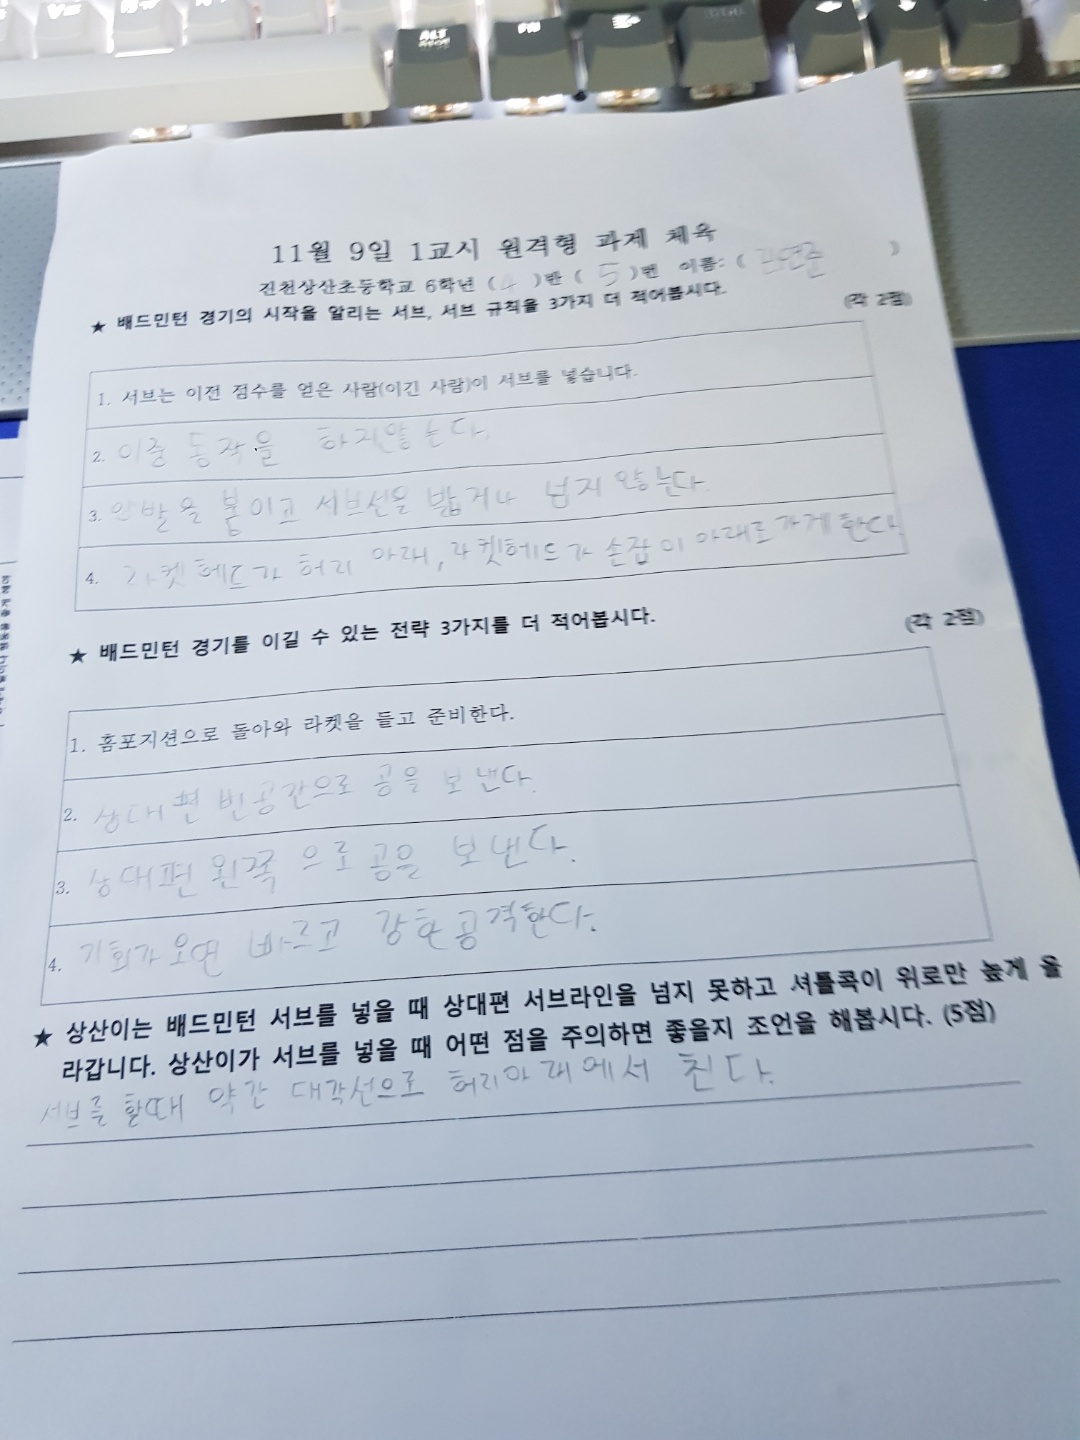 11월 9일 1교시 원격형 과제 체육
진천상산초등학교 6학년 ( 4 )반 ( 5 )번 이름: ( )
★ 배드민턴 경기의 시작을 알리는 서브, 서브 규칙을 3가지 더 적어봅시다. (각 2점)
1. 서브는 이전 점수를 얻은 사람(이긴 사람)이 서브를 넣습니다.
2. 이중 동작을 하지않는다.
3. 양발을 붙이고 서브선을 밟거나 넘지 않는다.
4. 라켓헤드가 허리 아래, 라켓헤드가 손잡이 아래로가게 한다
★ 배드민턴 경기를 이길 수 있는 전략 3가지를 더 적어봅시다. (각 2점)
1. 홈포지션으로 돌아와 라켓을 들고 준비한다.
2. 상대편 빈공간으로 공을 보낸다.
3. 상대편 왼쪽으로 공을 보낸다.
4. 기회가 오면 빠르고 강한공격한다.
★ 상산이는 배드민턴 서브를 넣을 때 상대편 서브라인을 넘지 못하고 셔틀콕이 위로만 높게 올
라갑니다. 상산이가 서브를 넣을 때 어떤 점을 주의하면 좋을지 조언을 해봅시다. (5점)
서브를 할때 약간 대각선으로 허리아래에서 친다.